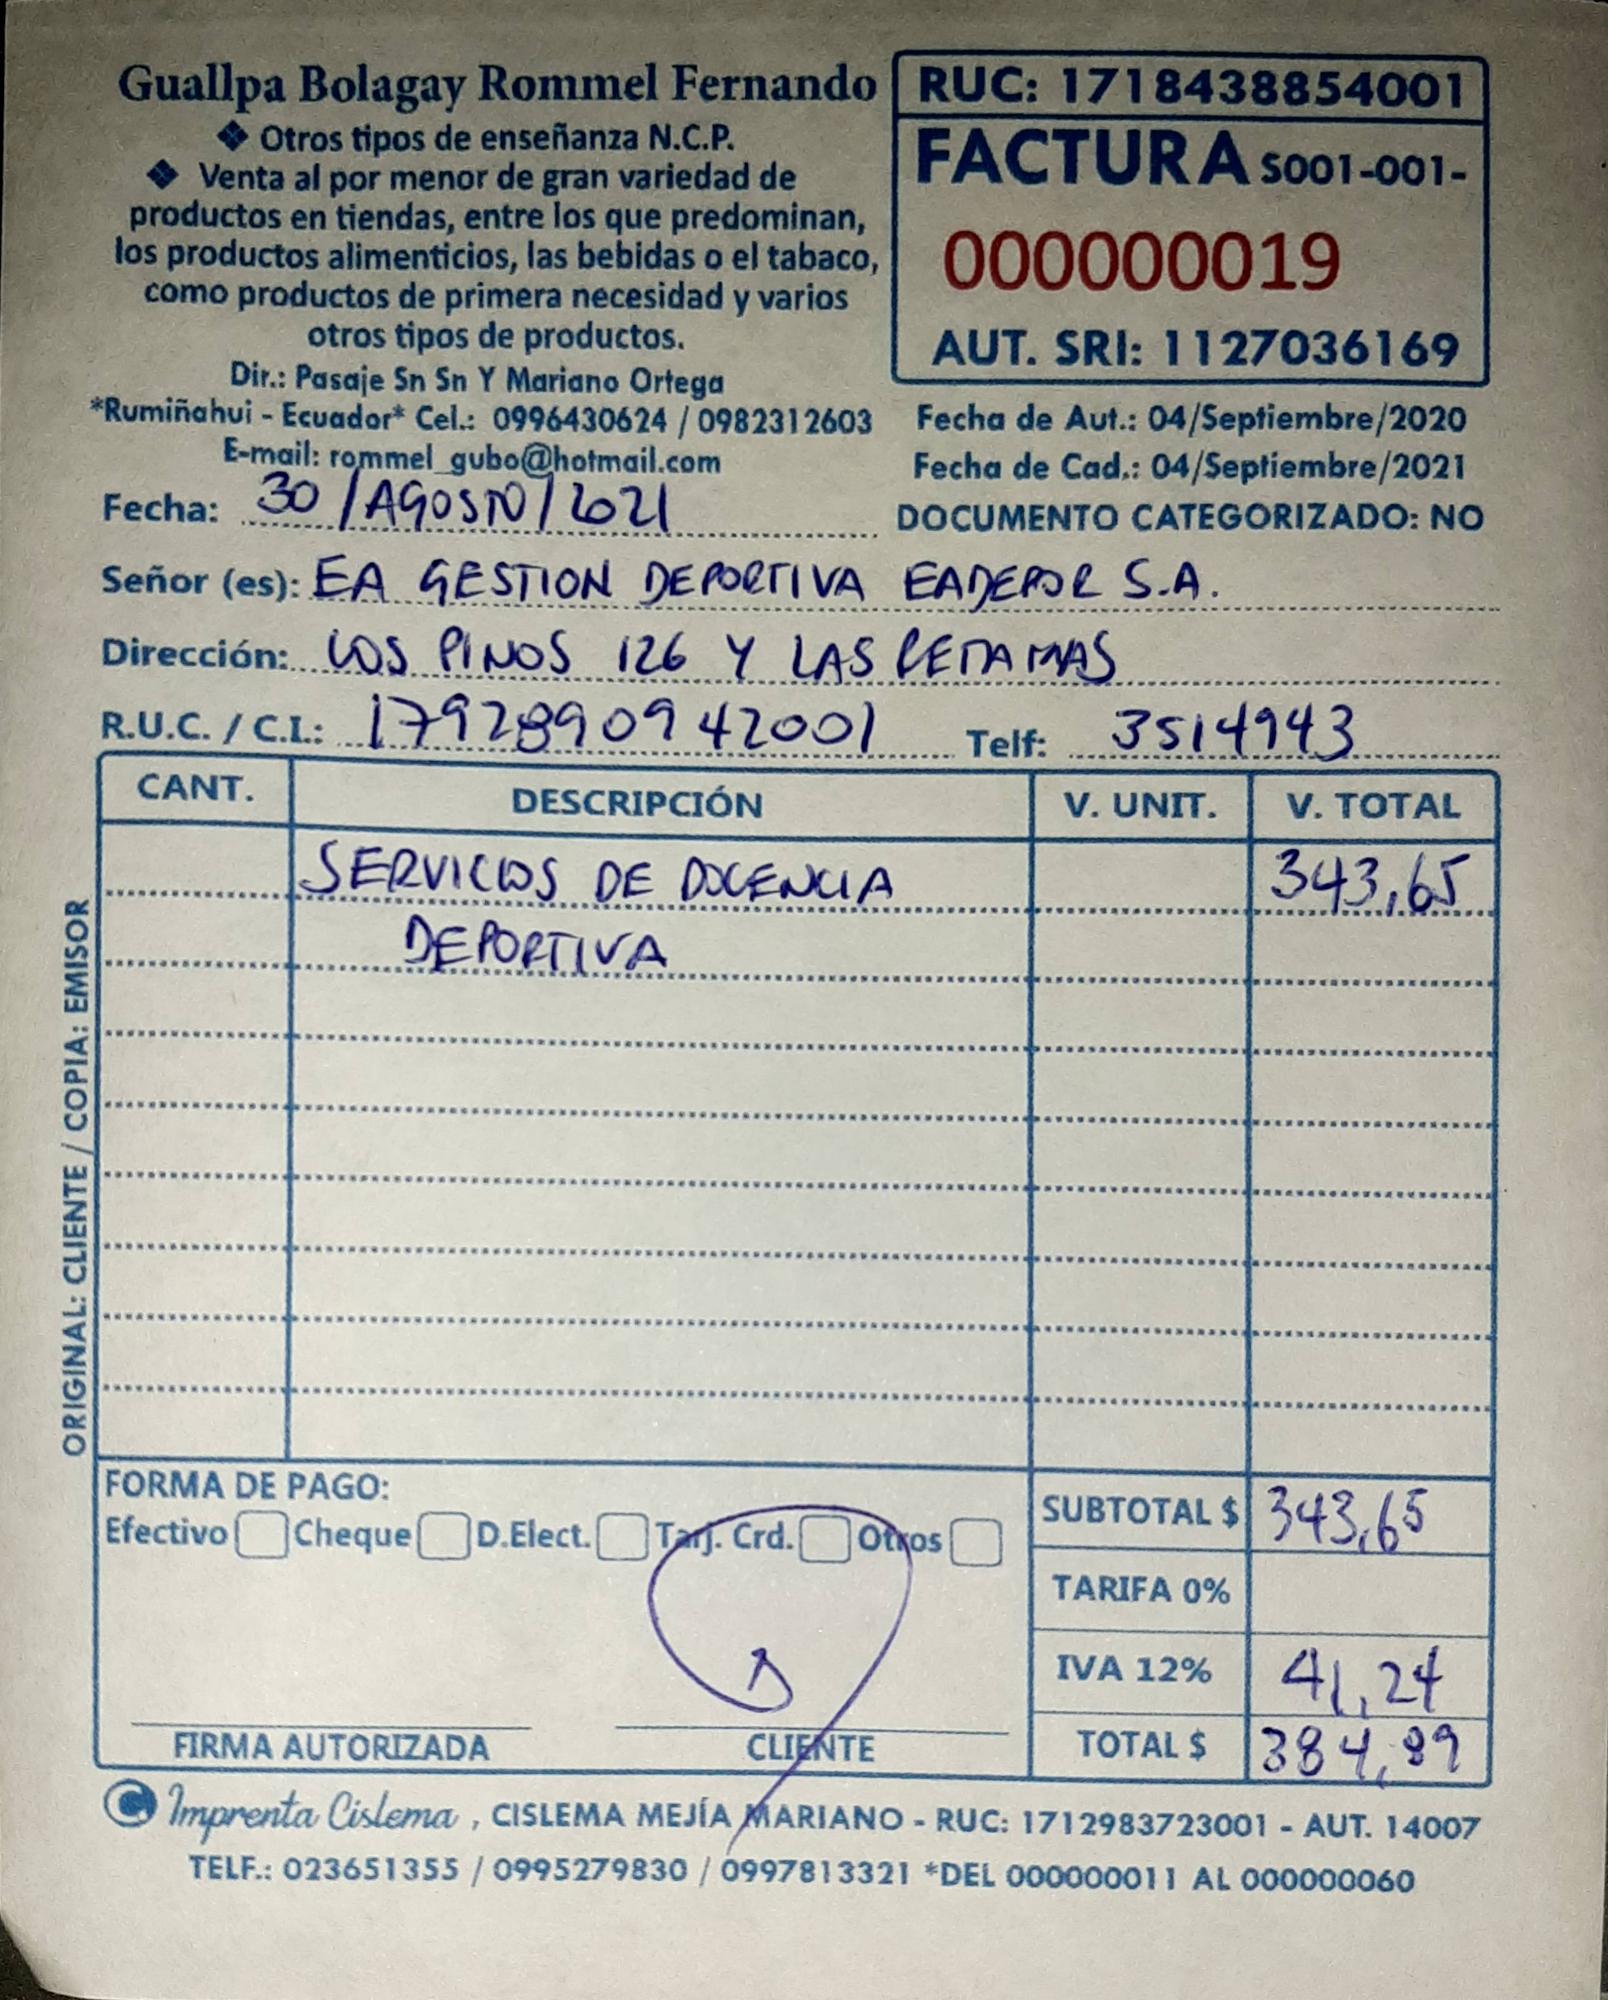 Guallpa Bolagay Rommel Fernando
❖ Otros tipos de enseñanza N.C.P.
❖ Venta al por menor de gran variedad de
productos en tiendas, entre los que predominan,
los productos alimenticios, las bebidas o el tabaco,
como productos de primera necesidad y varios
otros tipos de productos.
Dir.: Pasaje Sn Sn Y Mariano Ortega
*Rumiñahui - Ecuador* Cel.: 0996430624 / 0982312603
E-mail: rommel_gubo@hotmail.com
RUC: 1718438854001
FACTURA S001-001-
000000019
AUT. SRI: 1127036169
Fecha de Aut.: 04/Septiembre/2020
Fecha de Cad.: 04/Septiembre/2021
DOCUMENTO CATEGORIZADO: NO
Fecha: 30/AGOSTO/2021
Señor (es): EA GESTION DEPORTIVA EADEPOR S.A.
Dirección: LOS PINOS 126 Y LAS RETAMAS
R.U.C. / C.I.: 1792890942001 Telf: 3514943
CANT. DESCRIPCIÓN V. UNIT. V. TOTAL
SERVICIOS DE DOCENCIA 343,65
DEPORTIVA
ORIGINAL: CLIENTE / COPIA: EMISOR
FORMA DE PAGO:
Efectivo Cheque D.Elect. Tarj. Crd. Otros
SUBTOTAL $ 343,65
TARIFA 0%
IVA 12% 41,24
TOTAL $ 384,89
FIRMA AUTORIZADA CLIENTE
Imprenta Cislema, CISLEMA MEJÍA MARIANO - RUC: 1712983723001 - AUT. 14007
TELF.: 023651355 / 0995279830 / 0997813321 *DEL 000000011 AL 000000060